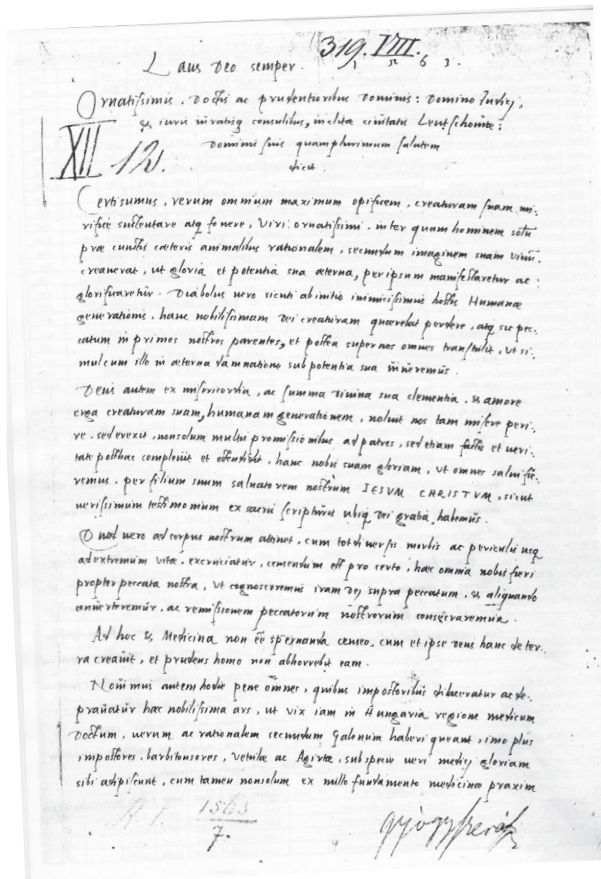 319. VIII.
Laus Deo semper. 1 5 6 3.
Ornatissimis, Doctis ac prudentioribus Dominis: Domino Judici,
& iuris iuratisq consulibus, inclitae civitatis Leutschoviae:
Dominis suis quamplurimum salutem
dicit.
XII 12.
Certisumus, verum omnium maximum opificem, creaturam suam mi-
rifice sustentare atq fovere, Viri ornatissimi, inter quam hominem solũ
prae cunctis caeteris animalibus rationalem, secundum imaginem suam vivũ
creaverat, ut gloria et potentia sua aeterna, per ipsum manifestaretur ac
glorificaretur. Diabolus vero sicuti ab initio inimicissimus hostis Humanae
generationis, hanc nobilissimam Dei creaturam quaerebat perdere, atq sic pec-
catum in primos nostros parentes, et postea super nos omnes transtulit, ut si-
mul cum illo in aeterna damnatione sub potentia sua iniremus.
Deus autem ex misericordia, ac summa divina sua clementia, & amore
erga creaturam suam, humanam generationem, noluit nos tam misere peri-
re, sed erexit, non solum multis promissionibus ad patres, sed etiam factis et veri-
tate posthac complevit et ostendidit, hanc nobis suam gloriam, ut omnes salvi fie-
remus, per filium suum salvatorem nostrum IESUM CHRISTUM, sicut
verissimum testimonium ex sacris scripturis ubiq Dei gratia habemus.
Quod vero ad corpus nostrum attinet, cum tot diversis morbis ac periculis usq
ad extremum vitae, excruciatur, censendum est pro certo, haec omnia nobis fieri
propter peccata nostra, ut cognosceremus iram Dei supra peccatum, & aliquando
converteremur, ac remissionem peccatorum nostrorum consequeremur.
Ad hoc & Medicina non eẽ spernanda censeo, cum et ipse Deus hanc de ter-
ra creavit, et prudens homo non abhorrebit eam.
Novimus autem hodie pene omnes, quibus impostoribus dilaceratur ac de-
pravatur haec nobilissima ars, ut vix iam in Hungaria regione medicum
Doctum, verum ac rationalem secundum Galenum haberi queant, imo plus
impostores, barbitonsores, vetulae ac Agirtae, sub specie veri medici gloriam
sibi adipiscunt, cum tamen non solum ex nullo fundamento medicinae praxim
1563
7.